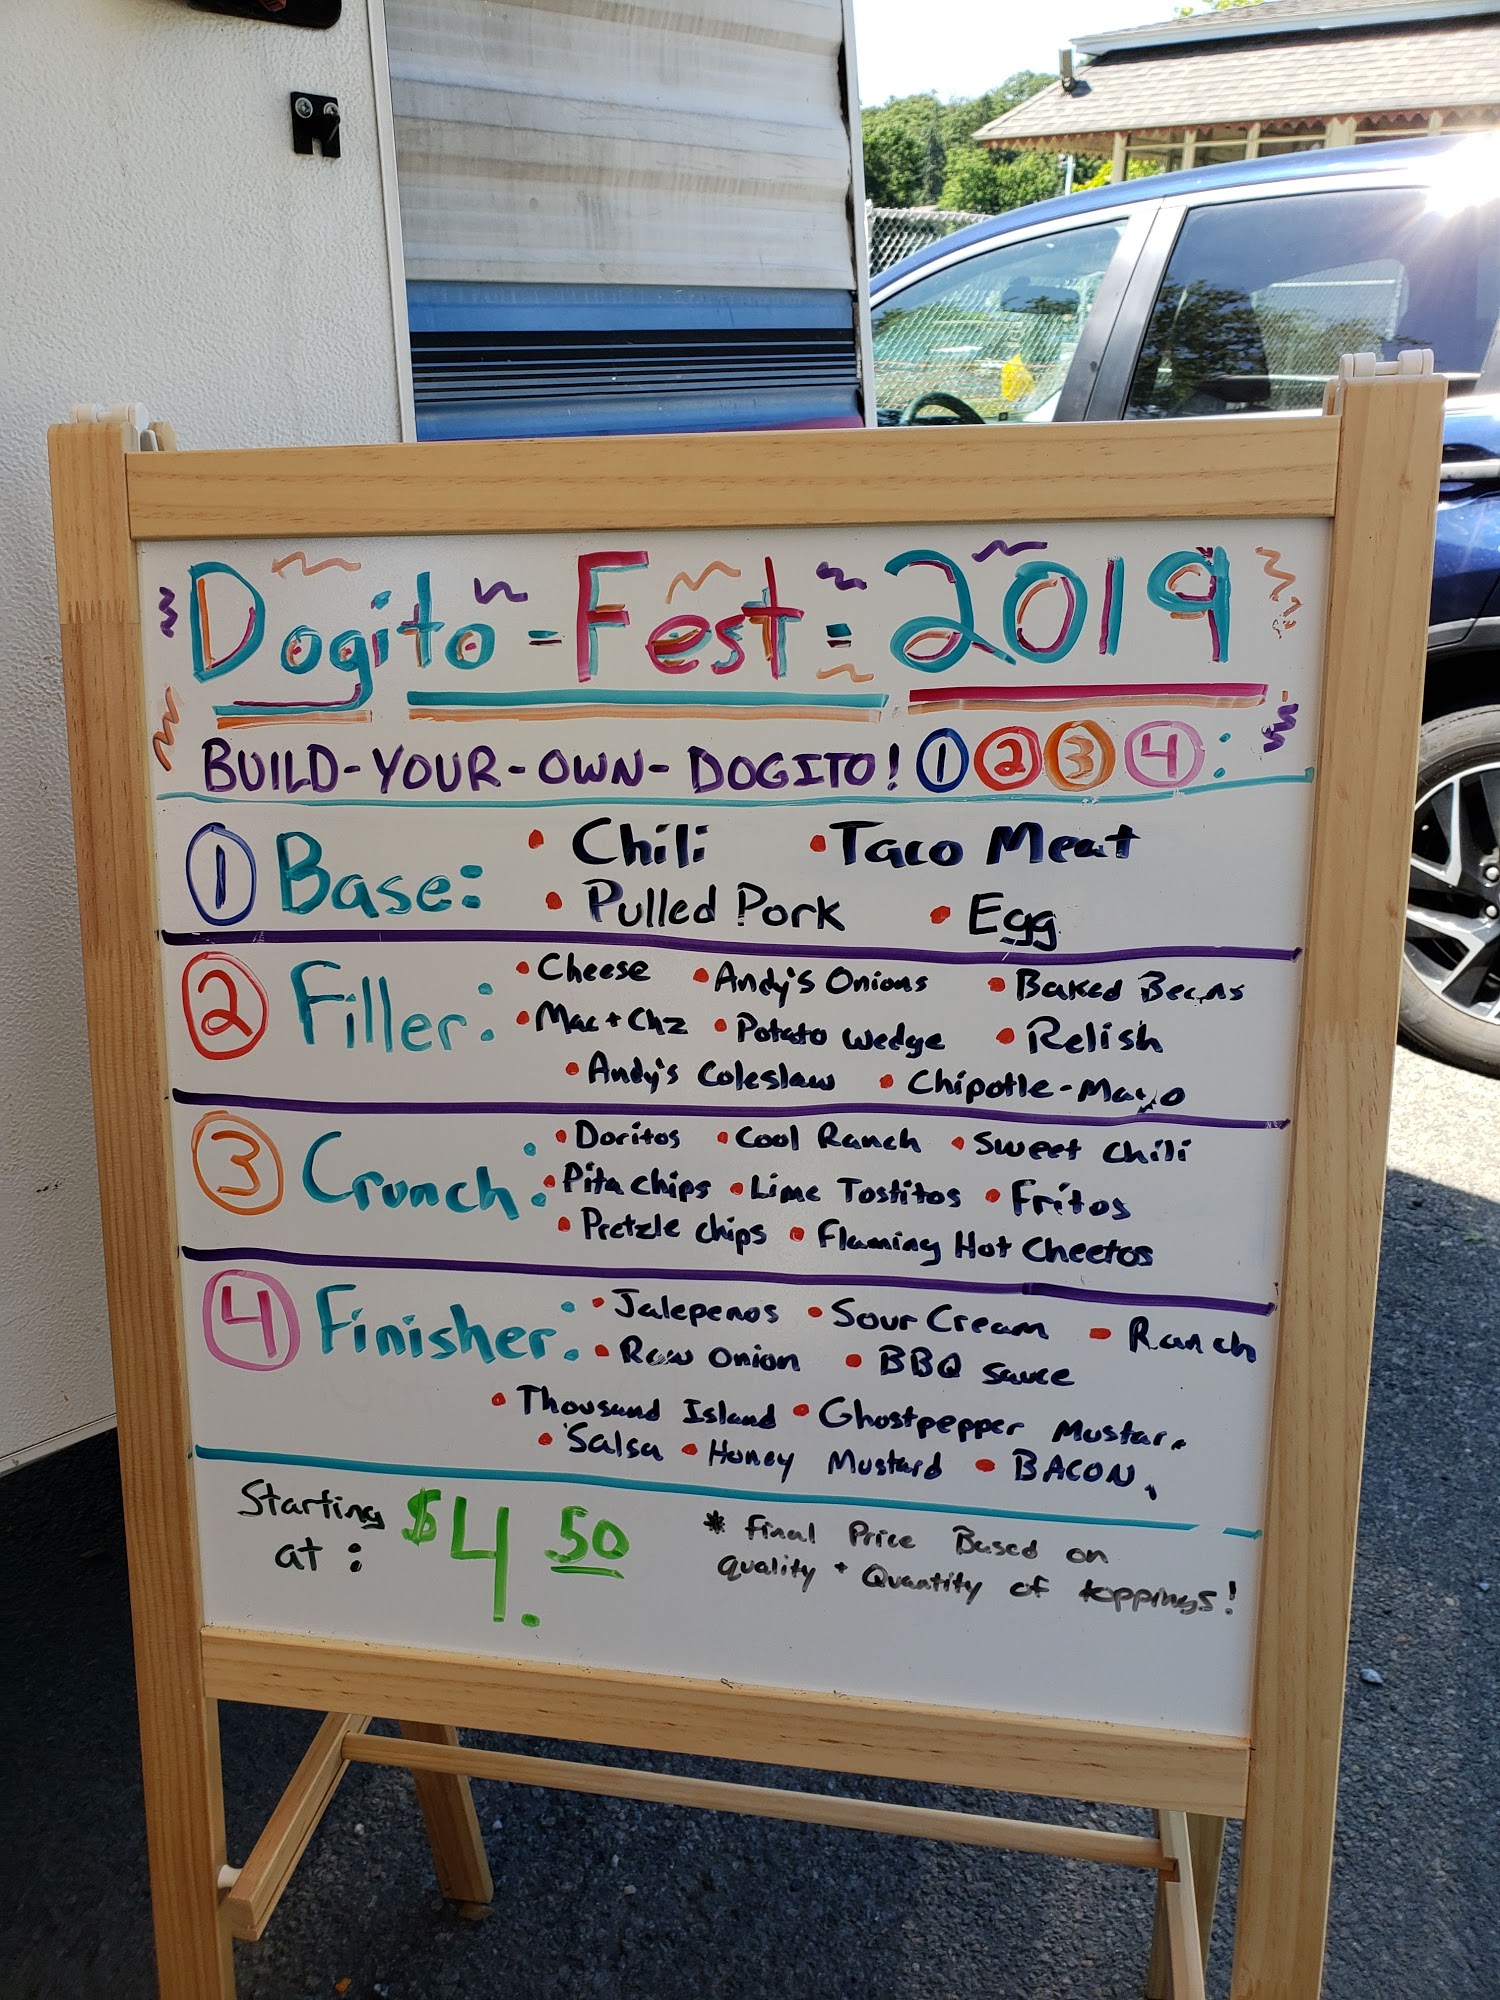 Dogito-Fest-2019
BUILD-YOUR-OWN-DOGITO! 1 2 3 4:
1 Base: • Chili • Taco Meat
• Pulled Pork • Egg
2 Filler: • Cheese • Andy's Onions • Baked Beans
• Mac + Chz • Potato Wedge • Relish
• Andy's Coleslaw • Chipotle-Mayo
3 Crunch: • Doritos • Cool Ranch • Sweet Chili
• Pita chips • Lime Tostitos • Fritos
• Pretzle chips • Flaming Hot Cheetos
4 Finisher: • Jalepenos • Sour Cream • Ranch
• Raw onion • BBQ sauce
• Thousand Island • Ghostpepper Mustar.
• Salsa • Honey Mustard • BACON
Starting at: $4.50
* Final Price Based on
quality + Quantity of toppings!